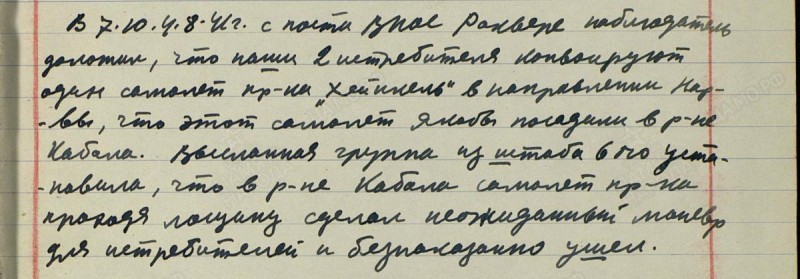 В 7.10. 4.8.41г. с поста ВНОС Раквере наблюдатель
доложил, что наши 2 истребителя конвоируют
один самолет пр-ка "Хейнкель" в направлении Нар-
-вы, что этот самолет якобы посадили в р-не
Кабала. Высланная группа из штаба 6 по уста-
-новила, что в р-не Кабала самолет пр-ка
проходя лощину сделал неожиданный маневр
для истребителей и безнаказанно ушел.